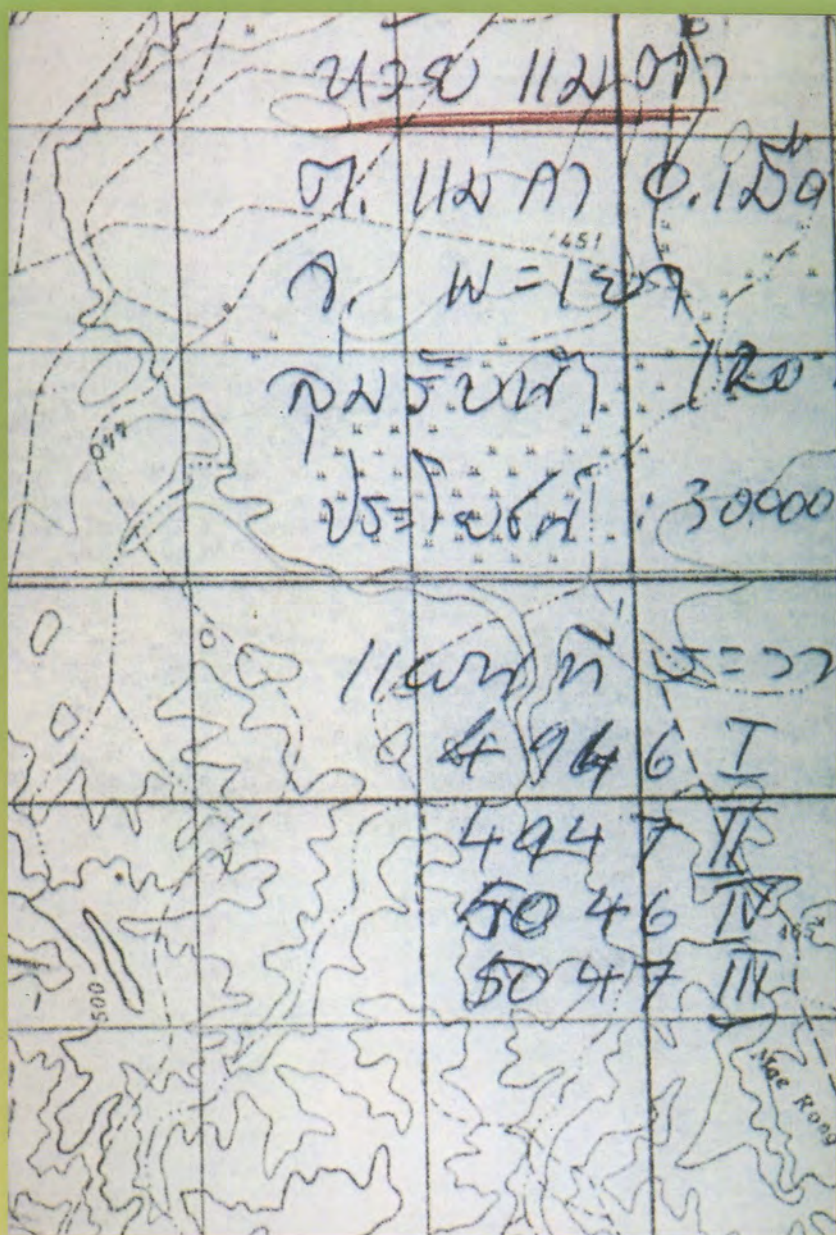 ห้วย แม่ต๋ำ
ต. แม่กา อ.เมือ
451
จ. พะเยา
ลุ่มรับน้ำ 120
440
ประโยชน์ : 30000
แผนที่ ระวา
4946 I
4947 II
5046 IV
465
5047 III
500
Mae Rong